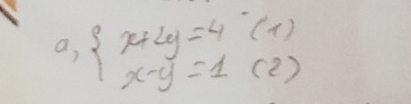 a, { x+2y=4 (1)
x-y=1 (2)